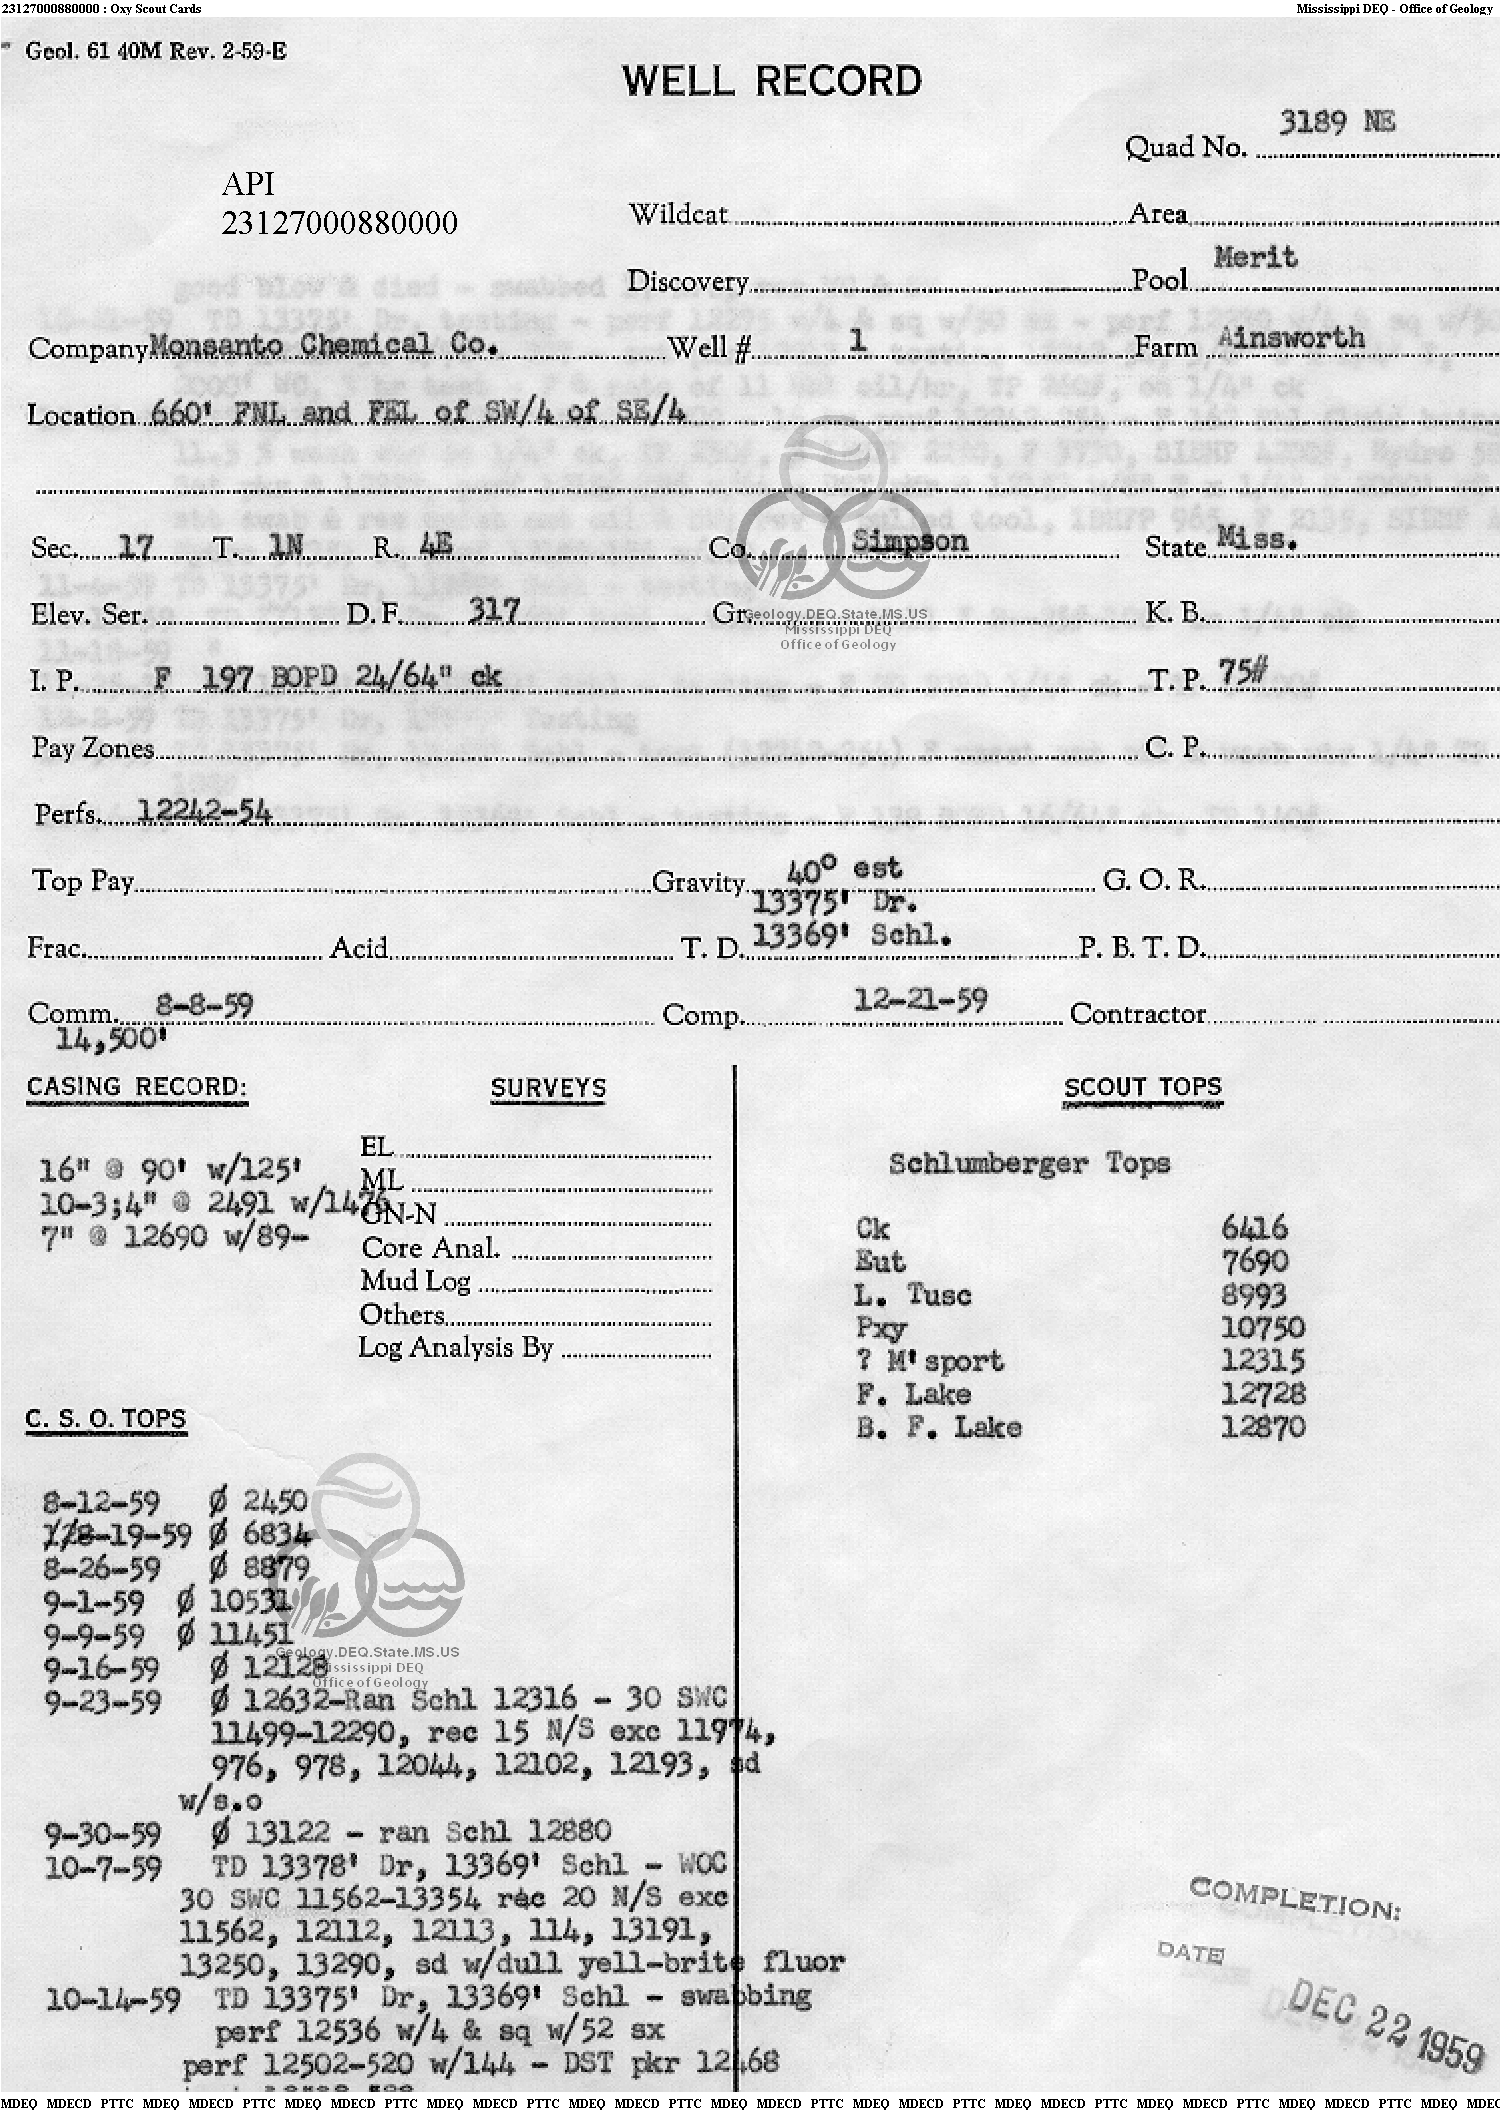 23127000880000 : Oxy Scout Cards Mississippi DEQ - Office of Geology
Geol. 61 40M Rev. 2-59-E
WELL RECORD
3189 NE
Quad No.
API
23127000880000
Wildcat Area
Discovery Pool Merit
Company Monsanto Chemical Co. Well # 1 Farm Ainsworth
Location 660' FNL and FEL of SW/4 of SE/4
Sec. 17 T. 1N R. 4E Co. Simpson State Miss.
Elev. Ser. D. F. 317 Gr. K. B.
Geology.DEQ.State.MS.US
Mississippi DEQ
Office of Geology
I. P. F 197 BOPD 24/64" ck T. P. 75#
Pay Zones C. P.
Perfs. 12242-54
Top Pay Gravity 40° est G. O. R.
13375' Dr.
Frac. Acid T. D. 13369' Schl. P. B. T. D.
Comm. 8-8-59 Comp. 12-21-59 Contractor
14,500'
CASING RECORD: SURVEYS SCOUT TOPS
EL
16" @ 90' w/125' Schlumberger Tops
ML
10-3;4" @ 2491 w/1476
GN-N
7" @ 12690 w/89-
Core Anal.
Mud Log
Others
Log Analysis By
Ck 6416
Eut 7690
L. Tusc 8993
Pxy 10750
? M'sport 12315
F. Lake 12728
B. F. Lake 12870
C. S. O. TOPS
8-12-59 Ø 2450
8-19-59 Ø 6834
8-26-59 Ø 8879
9-1-59 Ø 10531
9-9-59 Ø 11451
Geology.DEQ.State.MS.US
9-16-59 Ø 12128
Mississippi DEQ
Office of Geology
9-23-59 Ø 12632-Ran Schl 12316 - 30 SWC
11499-12290, rec 15 N/S exc 11974,
976, 978, 12044, 12102, 12193, sd
w/s.o
9-30-59 Ø 13122 - ran Schl 12880
10-7-59 TD 13378' Dr, 13369' Schl - WOC
30 SWC 11562-13354 rec 20 N/S exc
11562, 12112, 12113, 114, 13191,
13250, 13290, sd w/dull yell-brite fluor
10-14-59 TD 13375' Dr, 13369' Schl - swabbing
perf 12536 w/4 & sq w/52 sx
perf 12502-520 w/144 - DST pkr 12468
COMPLETION:
DATE
DEC 22 1959
MDEQ MDECD PTTC MDEQ MDECD PTTC MDEQ MDECD PTTC MDEQ MDECD PTTC MDEQ MDECD PTTC MDEQ MDECD PTTC MDEQ MDECD PTTC MDEQ MDECD PTTC MDEQ MDECD PTTC MDEQ MDECD PTTC MDEQ MDEC